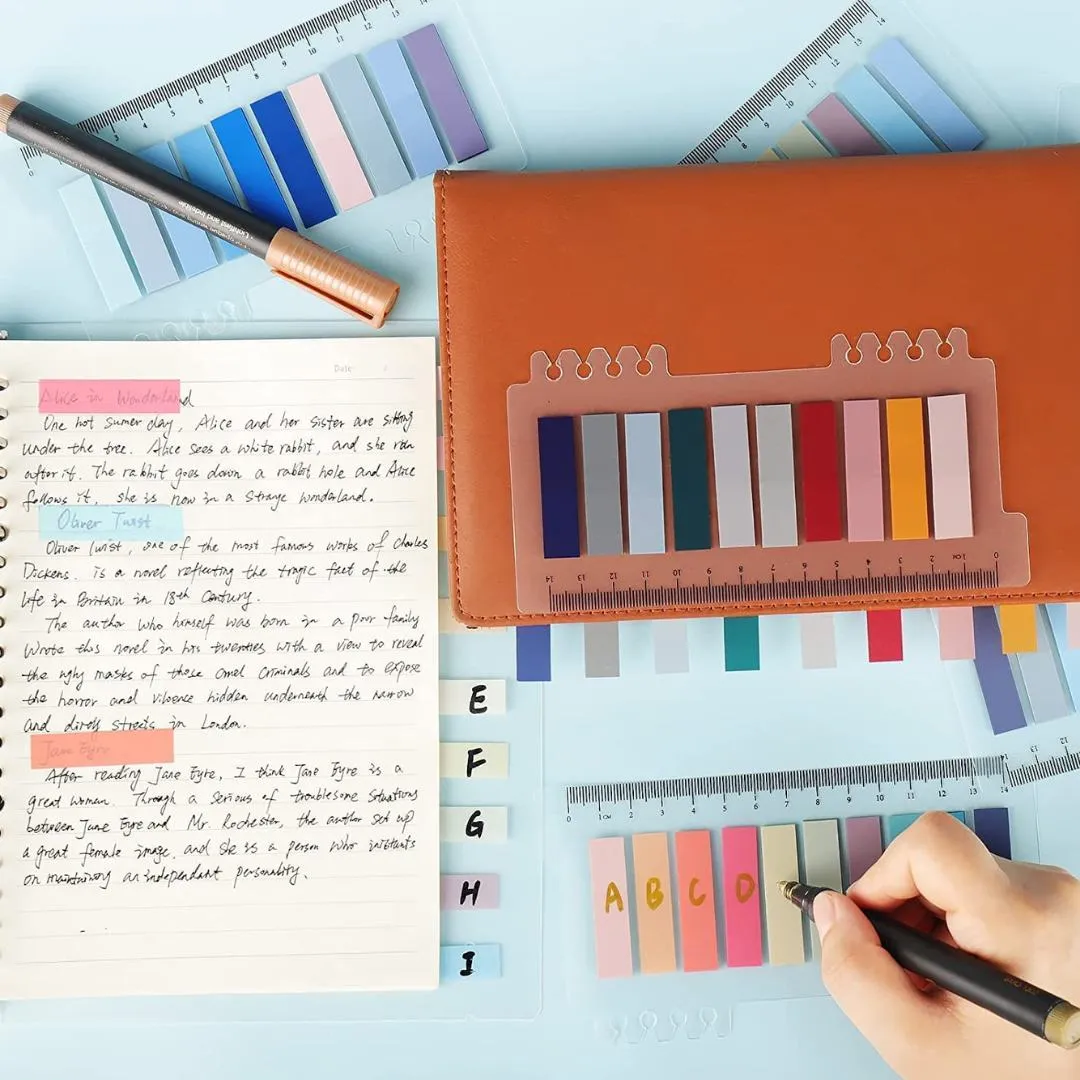 3 4 5 6 7 8 9 10 11 12 13 14
0
9 10 11 12 13 14
Lightfast and Indelible
Date:
Alice in Wonderland
One hot sumer day, Alice and her sister are sitting
under the tree. Alice sees a white rabbit, and she ran
after it. The rabbit goes down a rabbit hole and Alice
follows it, she is now in a Straye Wonderland.
Oliver Twist
Oliver Twist, one of the most famous works of Charles
Dickens. is a novel reflecting the tragic fact of the
life in Britain in 18th Century.
The author who himself was born in a poor family
wrote this novel in his twenties with a view to reveal
the ugly masks of those cruel criminals and to expose
the horror and violence hidden underneath the narrow
and dirty streets in London.
Jane Eyre
After reading Jane Eyre, I think Jane Eyre is a
great woman. Through a serious of troublesome situations
between Jane Eyre and Mr. Rochester, the author set up
a great female image, and she is a person who insistants
on maintaining an independant personality.
14 13 12 11 10 9 8 7 6 5 4 3 2 1cm 0
E
F
G
H
I
0 1cm 2 3 4 5 6 7 8 9 10 11 12 13 14
13 12
A B C D